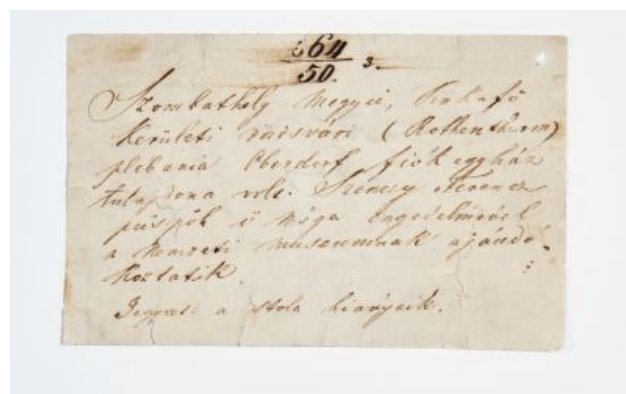 64
50. 3.
Szombathely megyei,
kerületi vörösvári (Rothenthurm)
plebania Oberdorf fiókegyház
tulajdona volt. Szenczy Ferencz
püspök ő
a nemzeti museumnak ajándé-
koztatik.
Jegyzet: a stola hiányzik.